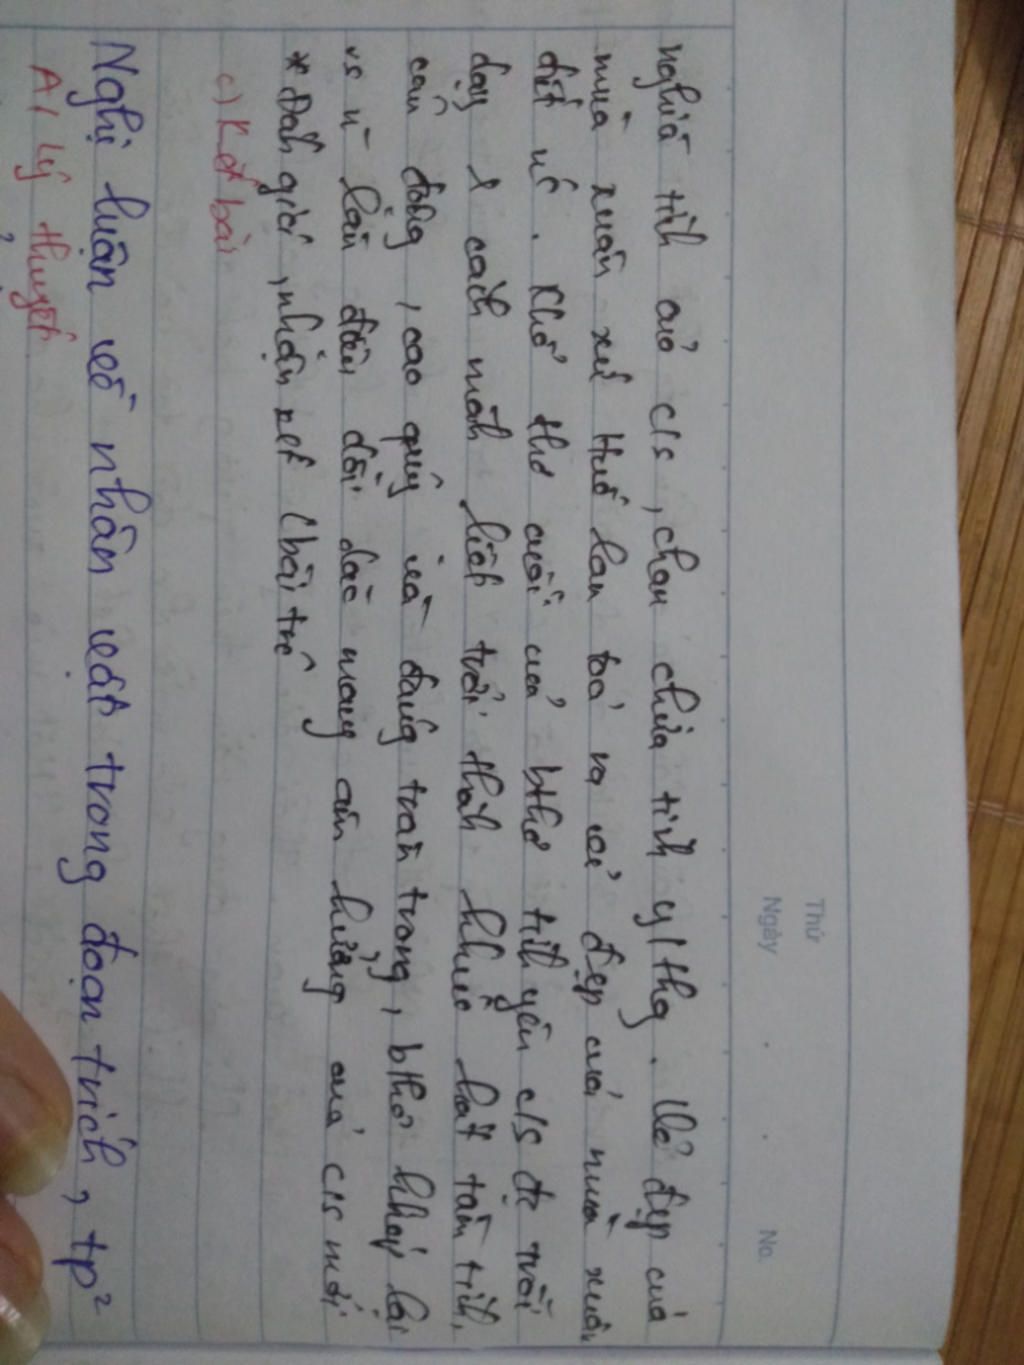 Thứ
Ngày . . No.
nghĩa tình của c/s, chan chứa tình y/thg. Vẻ đẹp của
mùa xuân xứ Huế lan toả ra vẻ đẹp của mùa xuân
đất nc. Khổ thơ cuối của bthơ tình yêu c/s đc trỗi
dậy 1 cách mãnh liệt trở thành khúc hát tâm tình,
cảm động, cao quý và đáng trân trọng, bthơ khép lại
vs lần đầu dồi dào mang âm hưởng của c/s mới
* Đánh giá, nhận xét (bài trc
c) Kết bài
Nghị luận về nhân vật trong đoạn trích, tp²
A/ Lý thuyết